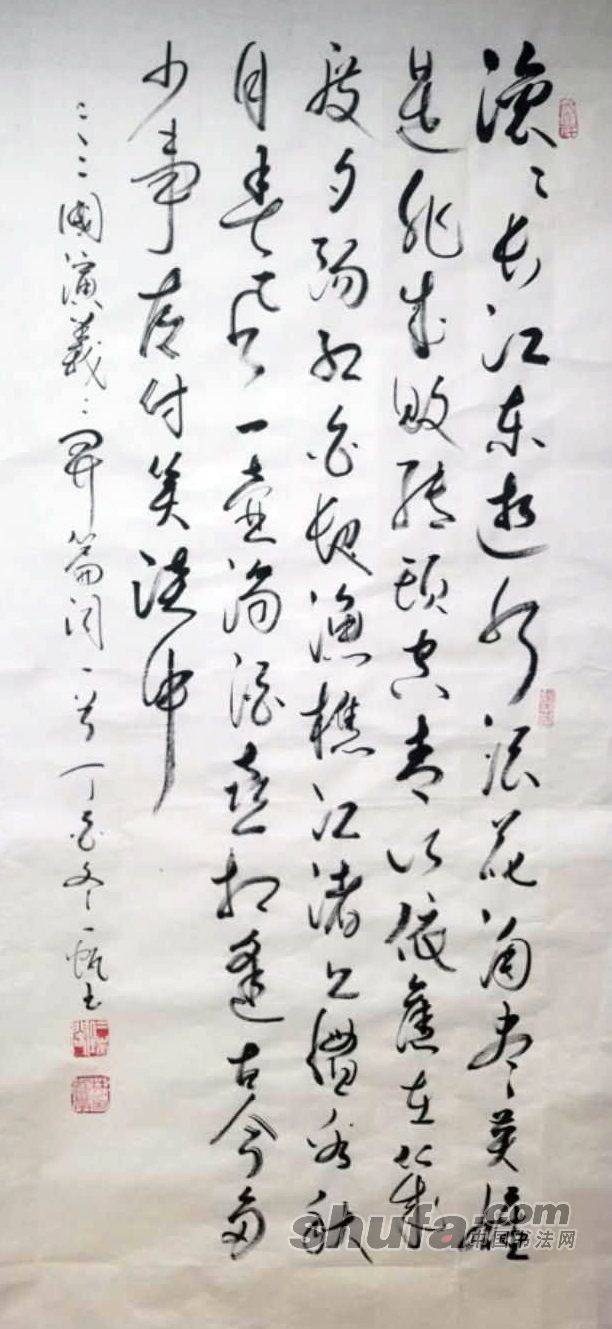 滚滚长江东逝水浪花淘尽英雄
是非成败转头空青山依旧在几
度夕阳红白发渔樵江渚上惯看秋
月春风一壶浊酒喜相逢古今多
少事都付笑谈中
三國演義之开篇词一首丁酉冬书
shufa.com
中国书法网